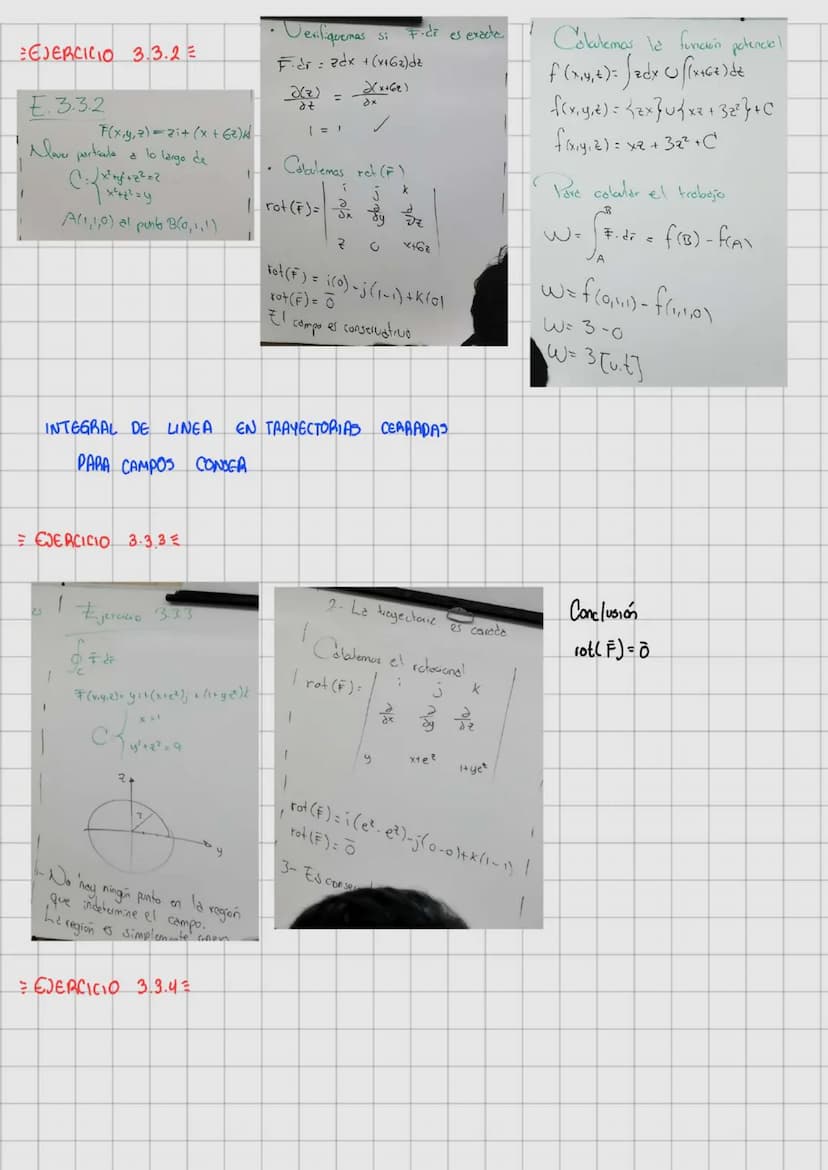 EJERCICIO 3.3.2
E.3.3.2
F(x,y,z) = zi + (x + 6z)k
Mover partícula a lo largo de
C: { x²+y²+z²=2
x²+z²=y
A(1,1,0) al punto B(0,1,1)
· Verifiquemos si F̄·dr̄ es exacta
F̄·dr̄ = zdx + (x+6z)dz
∂(z)/∂z = ∂(x+6z)/∂x
1 = 1 ✓
· Calculemos rot(F̄)
i j k
rot(F̄)= | ∂/∂x ∂/∂y ∂/∂z |
z 0 x+6z
rot(F̄) = i(0) - j(1-1) + k(0)
rot(F̄) = 0̄
El campo es conservativo
Calculemos la función potencial
f(x,y,z) = ∫zdx ∪ ∫(x+6z)dz
f(x,y,z) = {zx} ∪ {xz + 3z²} + C
f(x,y,z) = xz + 3z² + C
Para calcular el trabajo
W = ∫_A^B F̄·dr̄ = f(B) - f(A)
W = f(0,1,1) - f(1,1,0)
W = 3 - 0
W = 3 [u.t]
INTEGRAL DE LINEA EN TRAYECTORIAS CERRADAS
PARA CAMPOS CONSER
EJERCICIO 3.3.3
Ejercicio 3.3.3
∮_C F̄·dr̄
F(x,y,z) = yi + (x+e^z)j + (1+ye^z)k
C { x=1
y²+z²=9
z
y
No hay ningún punto en la región
que indetermine el campo.
La región es simplemente
2- La trayectoria es cerrada
Calculemos el rotacional
i j k
rot(F̄)= | ∂/∂x ∂/∂y ∂/∂z |
y x+e^z 1+ye^z
rot(F̄) = i(e^z - e^z) - j(0-0) + k(1-1)
rot(F̄) = 0̄
3- Es conse
Conclusión
rot(F̄) = 0̄
EJERCICIO 3.3.4